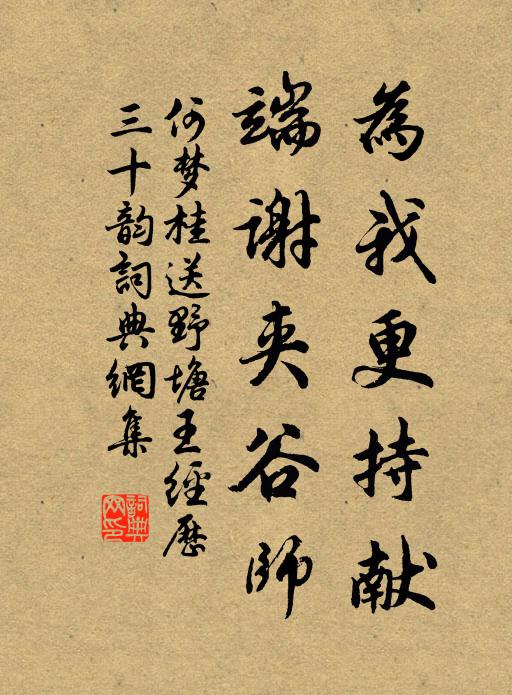 為我更持献
端谢夹谷師
何梦桂送野塘王經歷
三十韵詞典網集
詞典网印